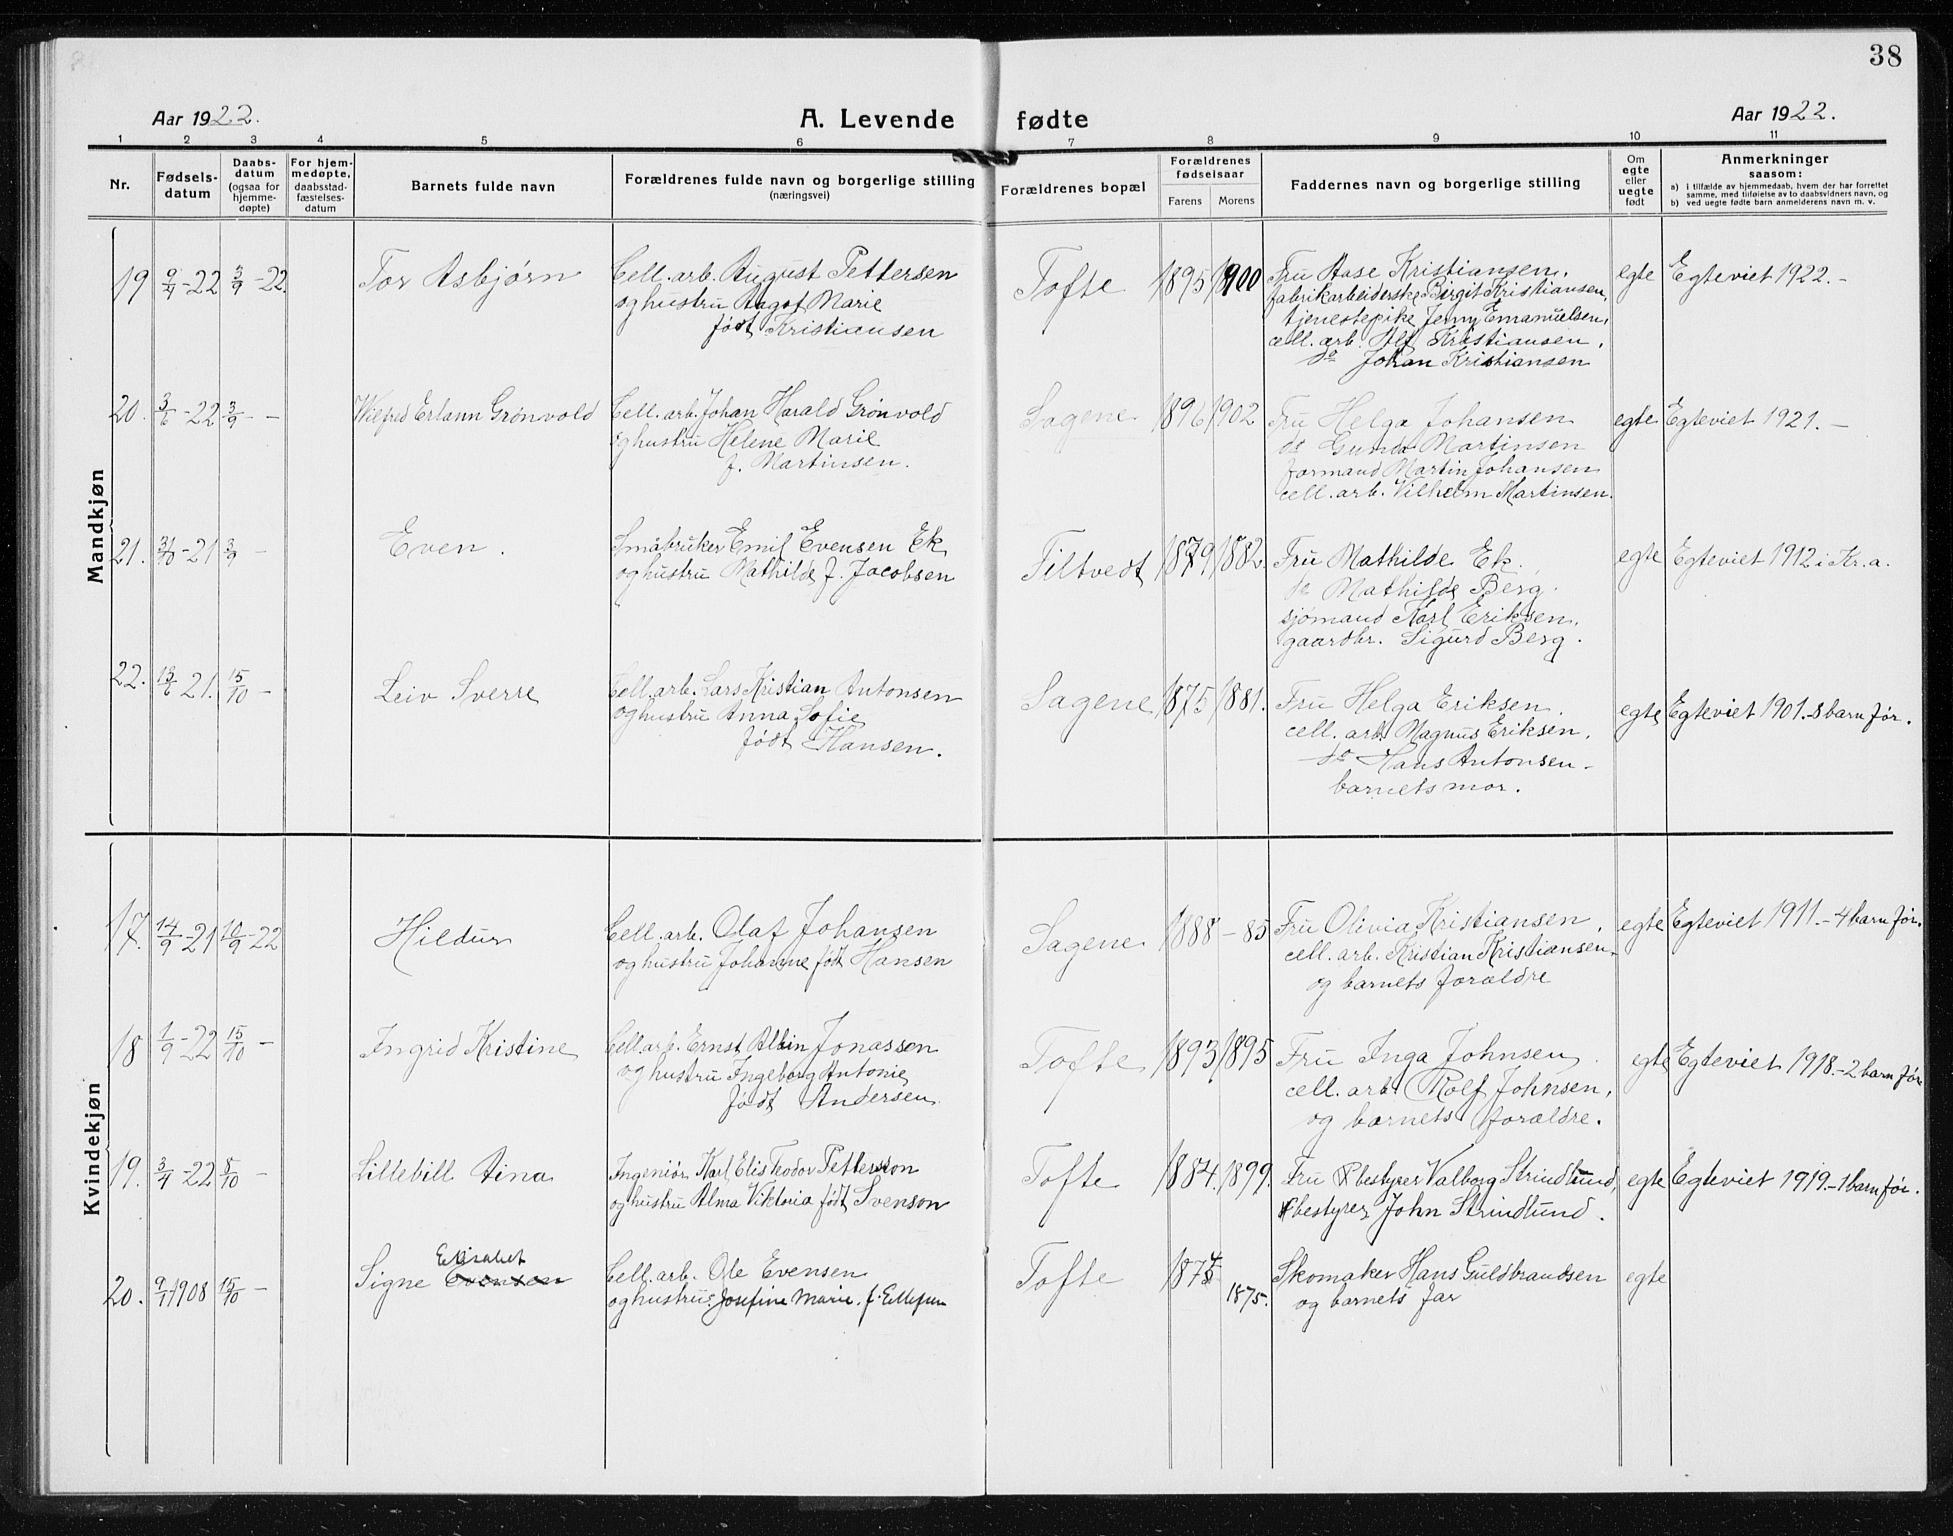 38
Aar 1922.
A. Levende fødte
Aar 1922.
1 2 3 4 5 6 7 8 9 10 11
Nr.
Fødsels-
datum
Daabs-
datum
(ogsaa for
hjemme-
døpte)
For hjem-
medøpte,
daabsstad-
fæstelses-
datum
Barnets fulde navn
Forældrenes fulde navn og borgerlige stilling
(næringsvei)
Forældrenes bopæl
Forældrenes
fødselsaar
Farens Morens
Faddernes navn og borgerlige stilling
Om
egte
eller
uegte
født
Anmerkninger
saasom:
a) i tilfælde av hjemmedaab, hvem der har forrettet
samme, med tilføielse av to daabsvidners navn, og
b) ved uegte fødte barn anmelderens navn m. v.
Mandkjøn
19 9/7-22 3/9-22.
Tor Asbjørn
Cell. arb. August Pettersen
og hustru Aagot Marie
født Kristiansen
Tofte
1895 1900
Fru Aase Kristiansen,
fabrikarbeiderske Birgit Kristiansen,
tjenestepike Jenny Emanuelsen,
cell. arb. Alf Kristiansen,
do Johan Kristiansen
egte
Egteviet 1922.-
20. 3/6-22 3/9 -
Wilfred Erlann Grönvold
Cell. arb. Johan Harald Grönvold
og hustru Helene Marie
f. Martinsen.
Sagene
1896 1902
Fru Helga Johansen
do Gunda Martinsen
formand Martin Johansen
cell. arb. Vilhelm Martinsen.
egte
Egteviet 1921.-
21. 31/10-21 3/9 -
Even.
Småbruker Emil Evensen Ek
og hustru Mathilde f. Jacobsen
Tiltvedt
1879 1882.
Fru Mathilde Ek.
do Mathilde Berg.
sjømand Karl Eriksen,
gaardbr. Sigurd Berg.
egte
Egteviet 1912 i Kr.a.
22. 13/6 21. 15/10 -
Leiv Sverre
Cell. arb. Lars Kristian Antonsen
og hustru Anna Sofie
født Hansen.
Sagene
1875 1881.
Fru Helga Eriksen.
cell. arb. Magnus Eriksen,
do Hans Antonsen -
barnets mor.
egte
Egteviet 1901.-8 barn før.
Kvindekjøn
17. 14/9-21 10/9-22
Hildur
Cell. arb. Olaf Johansen
og hustru Johanne født Hansen
Sagene
1888 - 85
Fru Olivia Kristiansen,
cell. arb. Kristian Kristiansen,
og barnets foræ­ldre
egte
Egteviet 1911.-4 barn før.
18 1/9-22 15/10 -
Ingrid Kristine
Cell. arb. Ernst Albin Jonassen
og hustru Ingeborg Antonie
født Andersen.
Tofte
1893 1895
Fru Inga Johnsen.
cell. arb. Rolf Johnsen,
og barnets forældre.
egte
Egteviet 1918.-2 barn før
19. 3/4-22 8/10 -
Lillebill Aina
Ingeniør Karl Elis Teodor Petterson
og hustru Alma Viktoria født Svenson
Tofte
1884. 1899.
Fru bestyrer Valborg Strindlund,
bestyrer John Strindlund.
egte
Egteviet 1919.-1 barn før.
20. 9/1 1908 15/10 -
Elisabet
Signe Evensen
Cell. arb. Ole Evensen
og hustru: Josefine Marie. f. Ellefsen
Tofte
1874
1875.
Skomaker Hans Guldbrandsen
og barnets far
egte